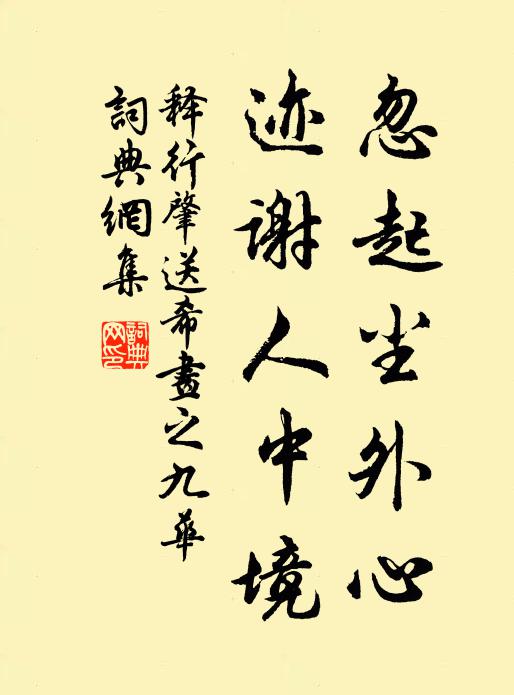 忽起尘外心
迹谢人中境
释行肇送希昼之九华
词典网集
詞典
网印